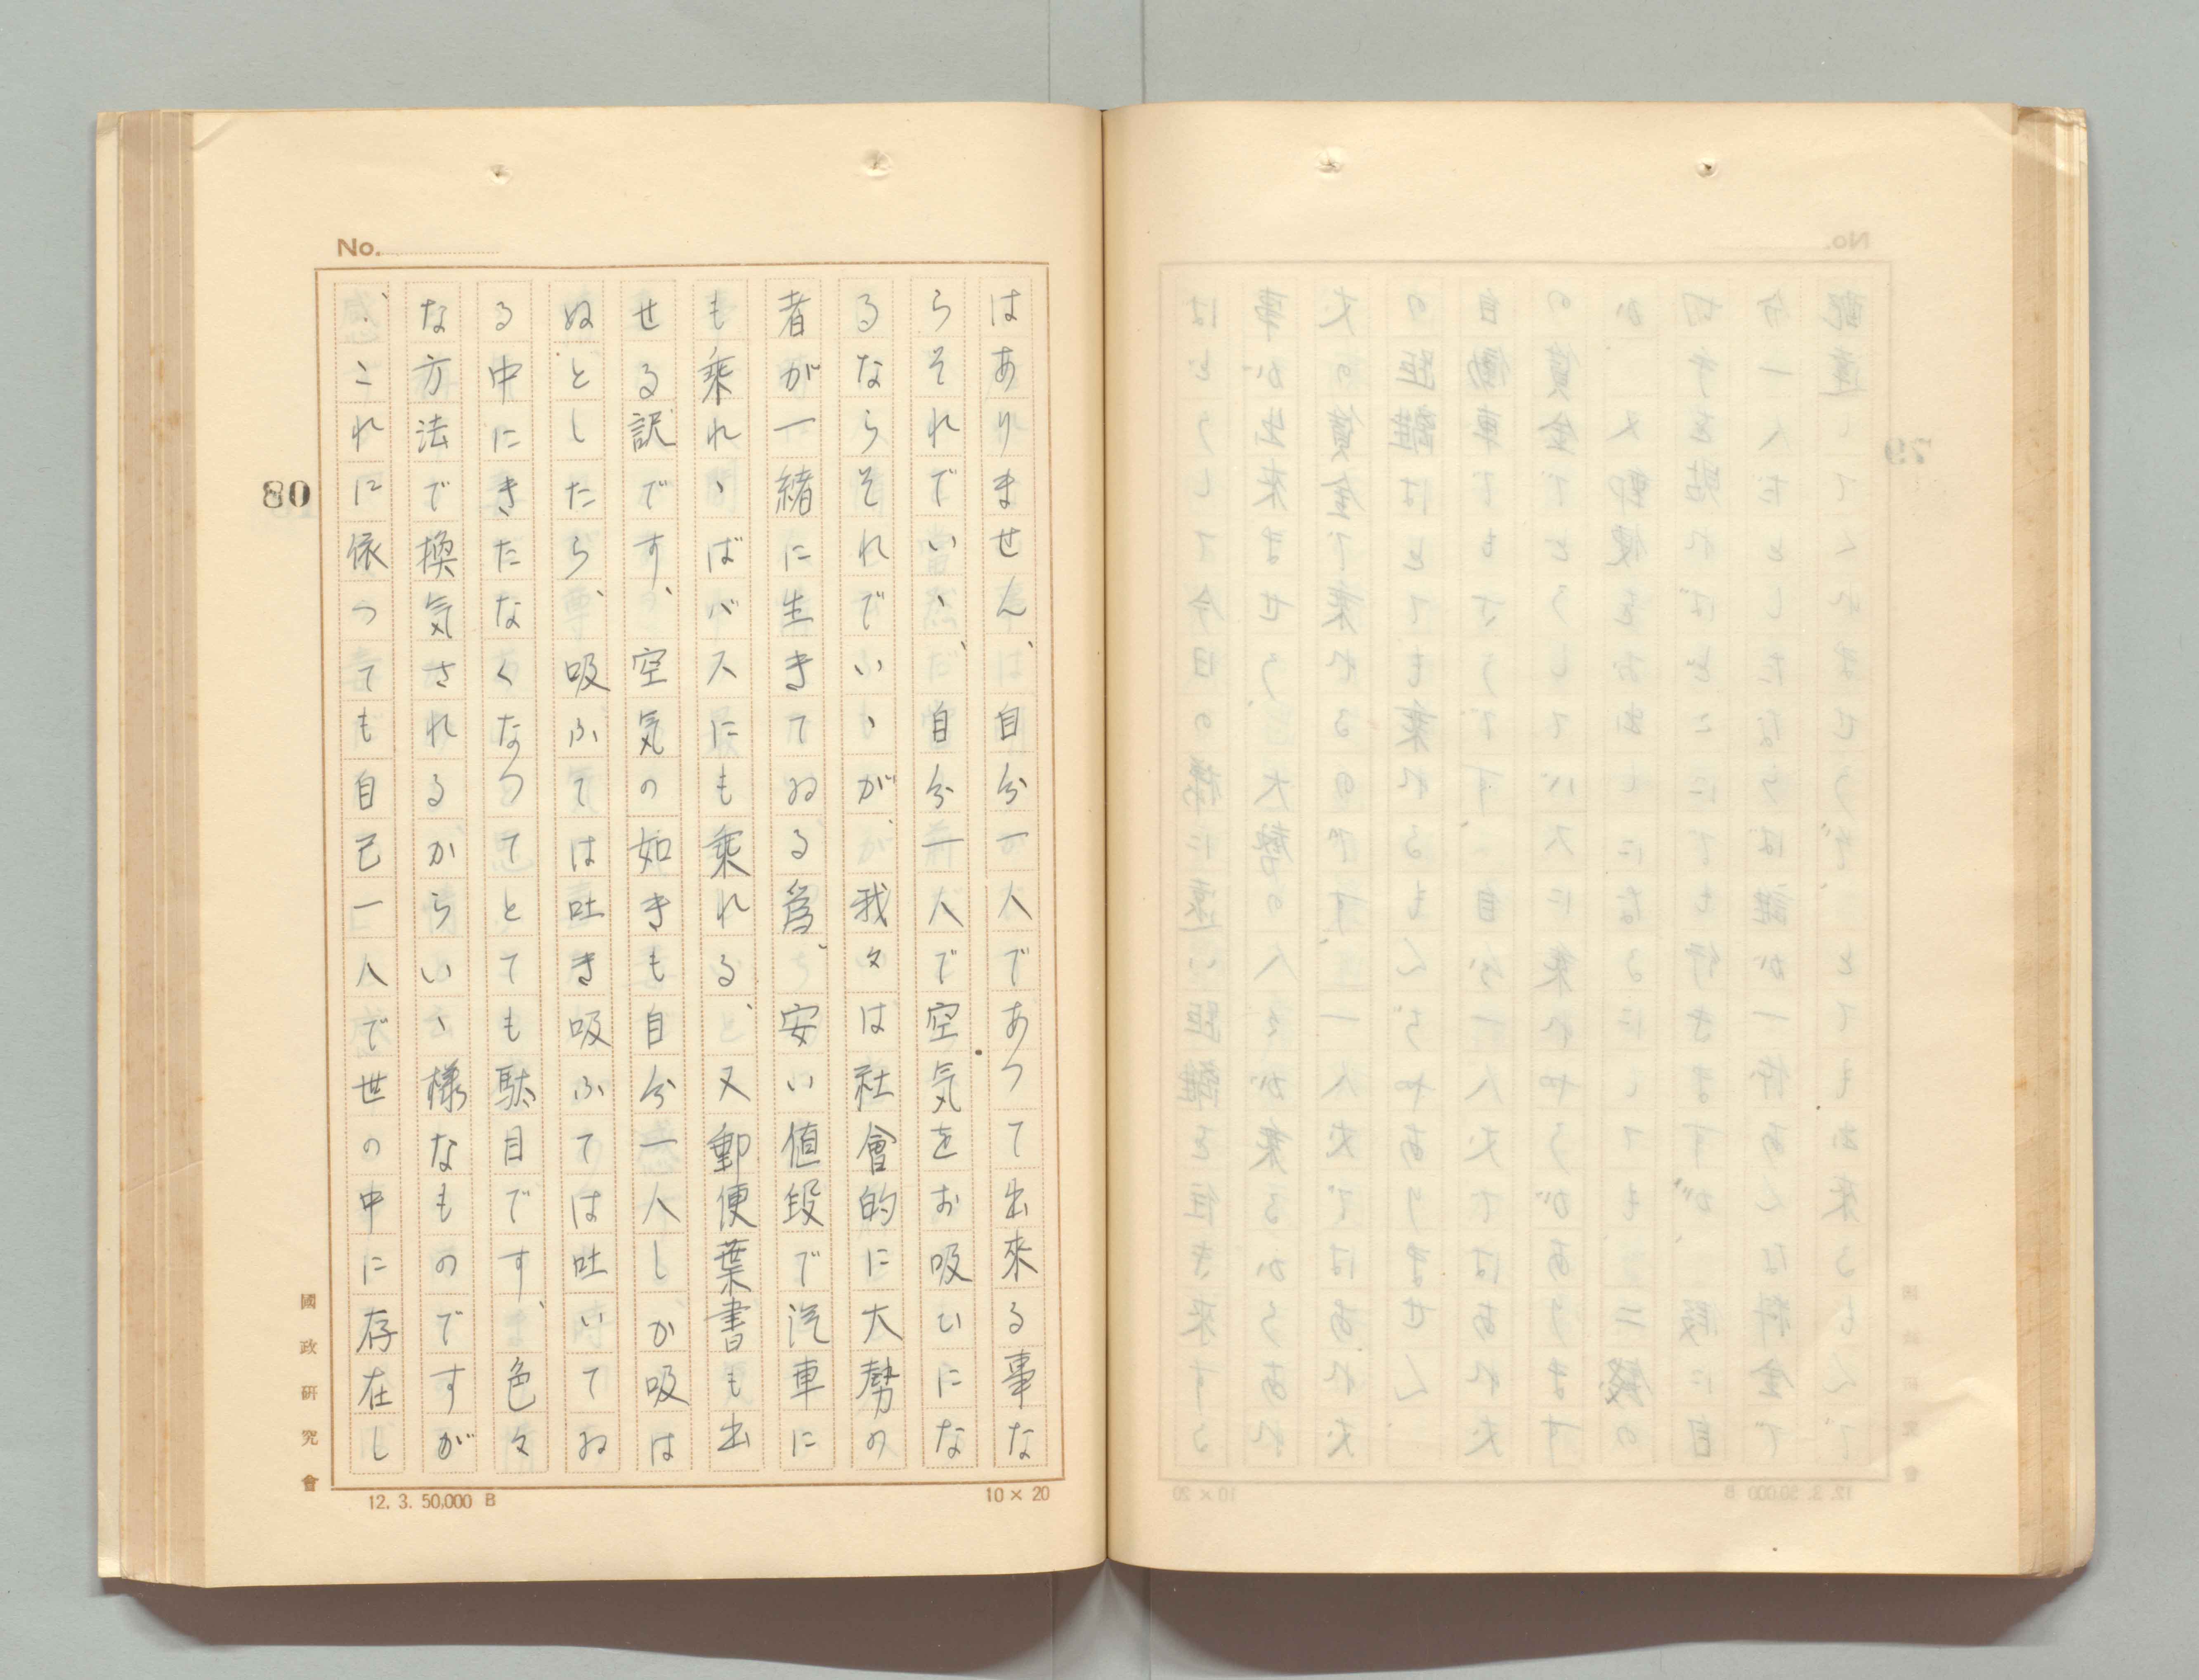 No.
はありません、自分一人であつて出來る事な
らそれでいゝ、自分一人で空気をお吸ひにな
るならそれでいゝが、我々は社會的に大勢の
者が一緒に生きてゐる為、安い値段で汽車に
も乗れゝばバスにも乗れる、又郵便葉書も出
せる訳です、空気の如きも自分一人しか吸は
ぬとしたら、吸ふては吐き吸ふては吐いてゐ
る中にきたなくなつてとても駄目です、色々
な方法で換気されるからいゝ様なものですが
、これに依つても自己一人で世の中に存在し
80
國政研究會
12. 3. 50,000 B
10×20